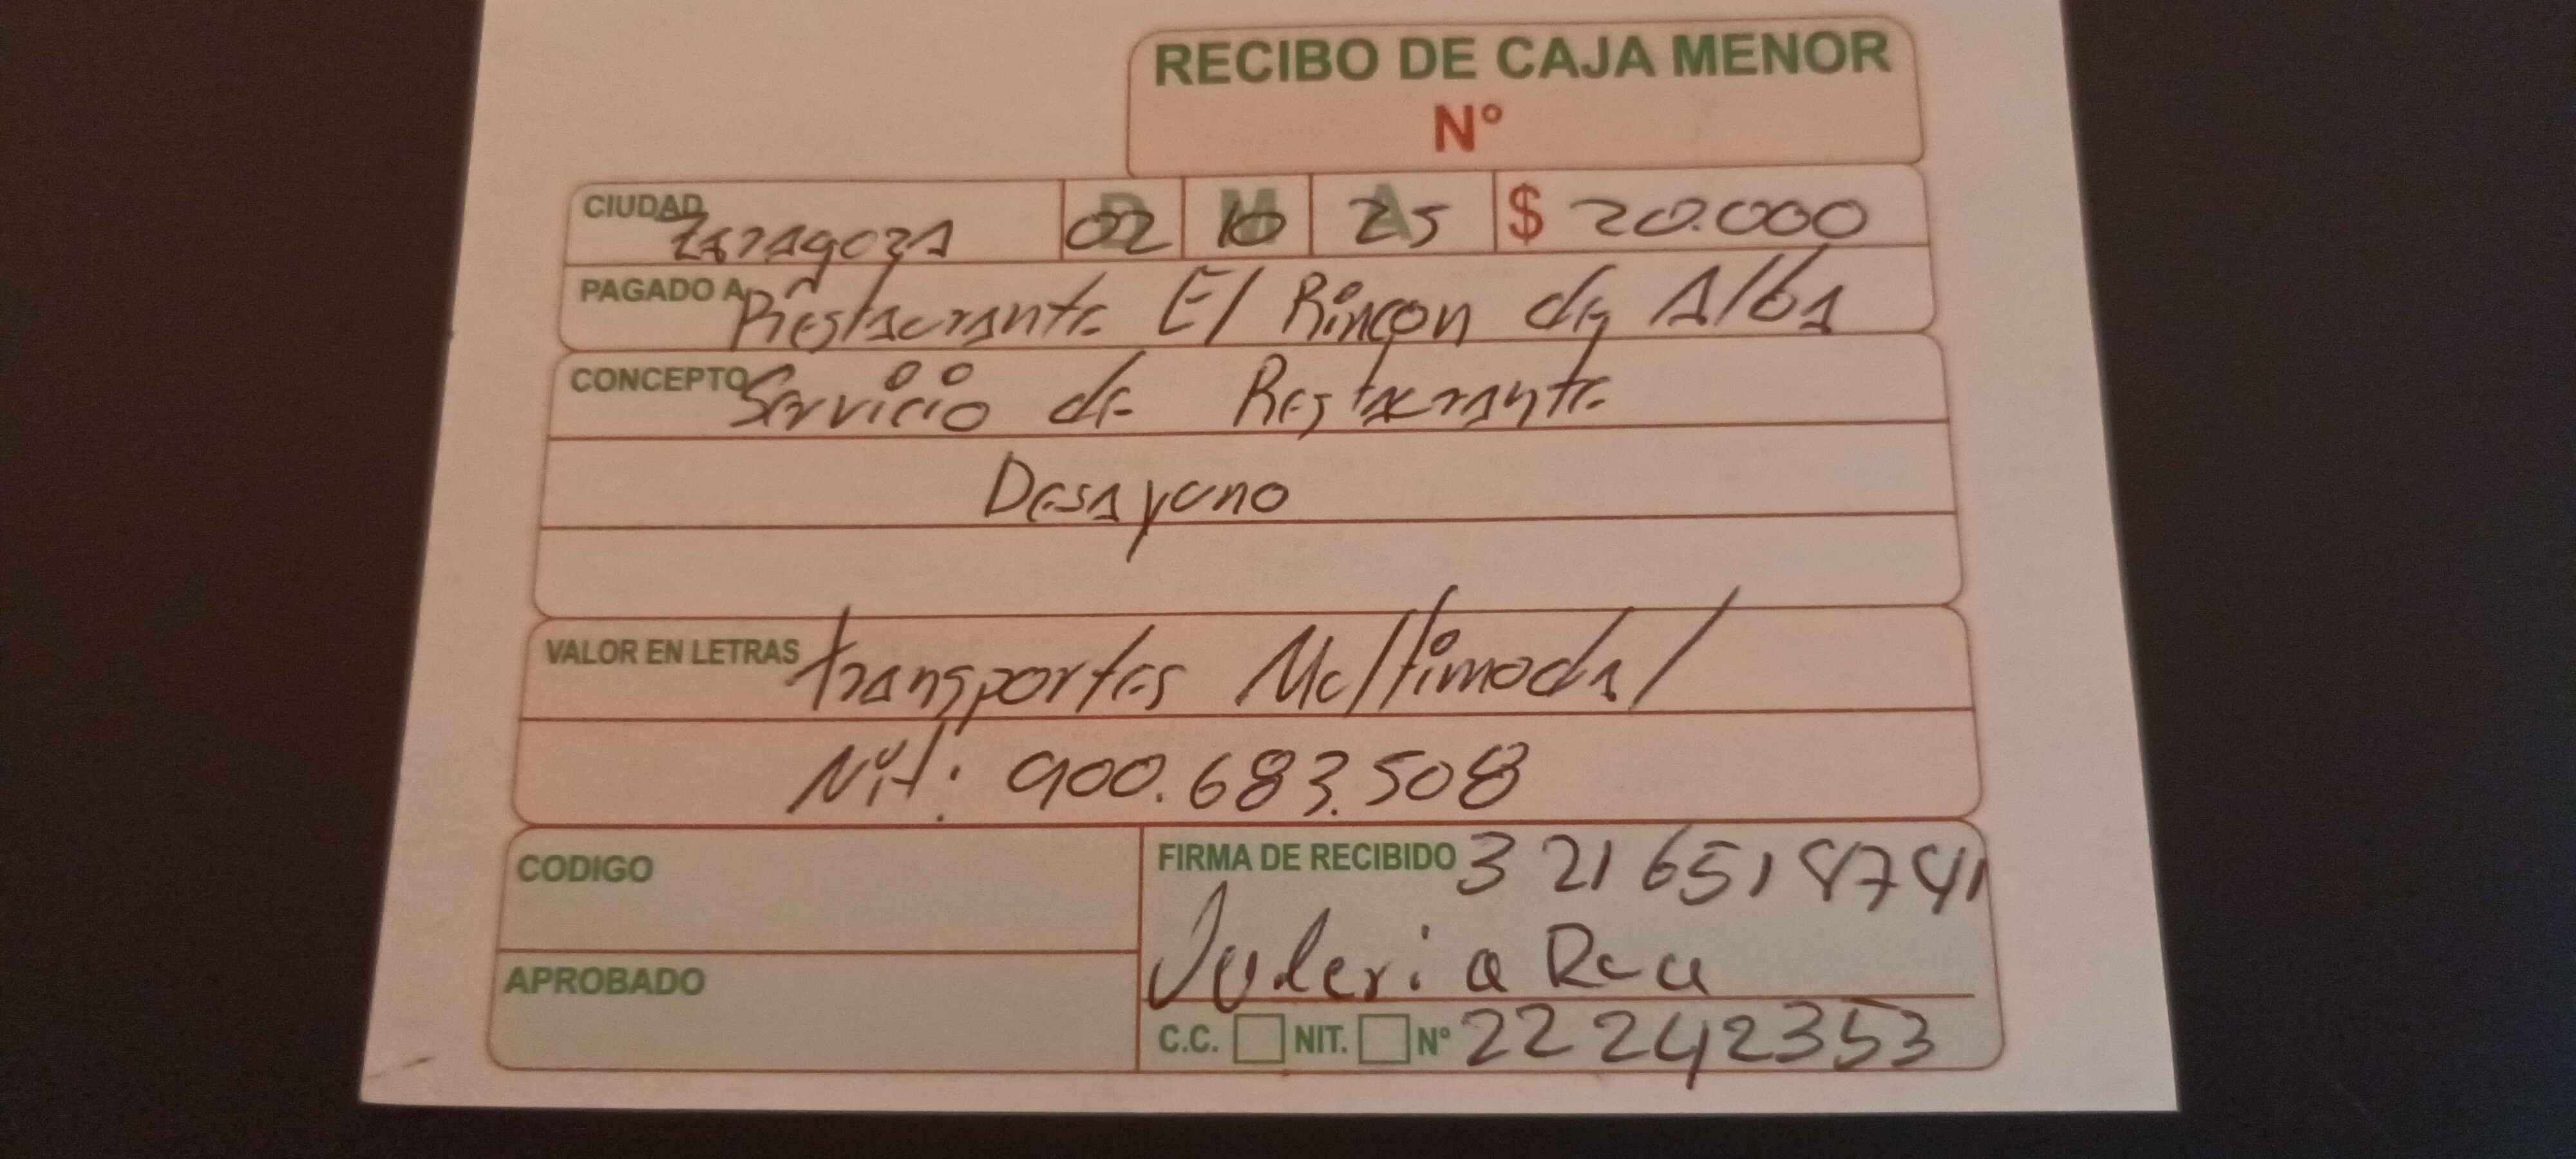 RECIBO DE CAJA MENOR
N°
CIUDAD Zaragoza D 02 M 10 A 25 $ 20.000
PAGADO A Restaurante El Rincon de Alba
CONCEPTO Servicio de Restaurante
Desayuno
VALOR EN LETRAS transportes Multimodal
Nit: 900.683.508
CODIGO
FIRMA DE RECIBIDO 3216518741
APROBADO
C.C. NIT. N° 22242353